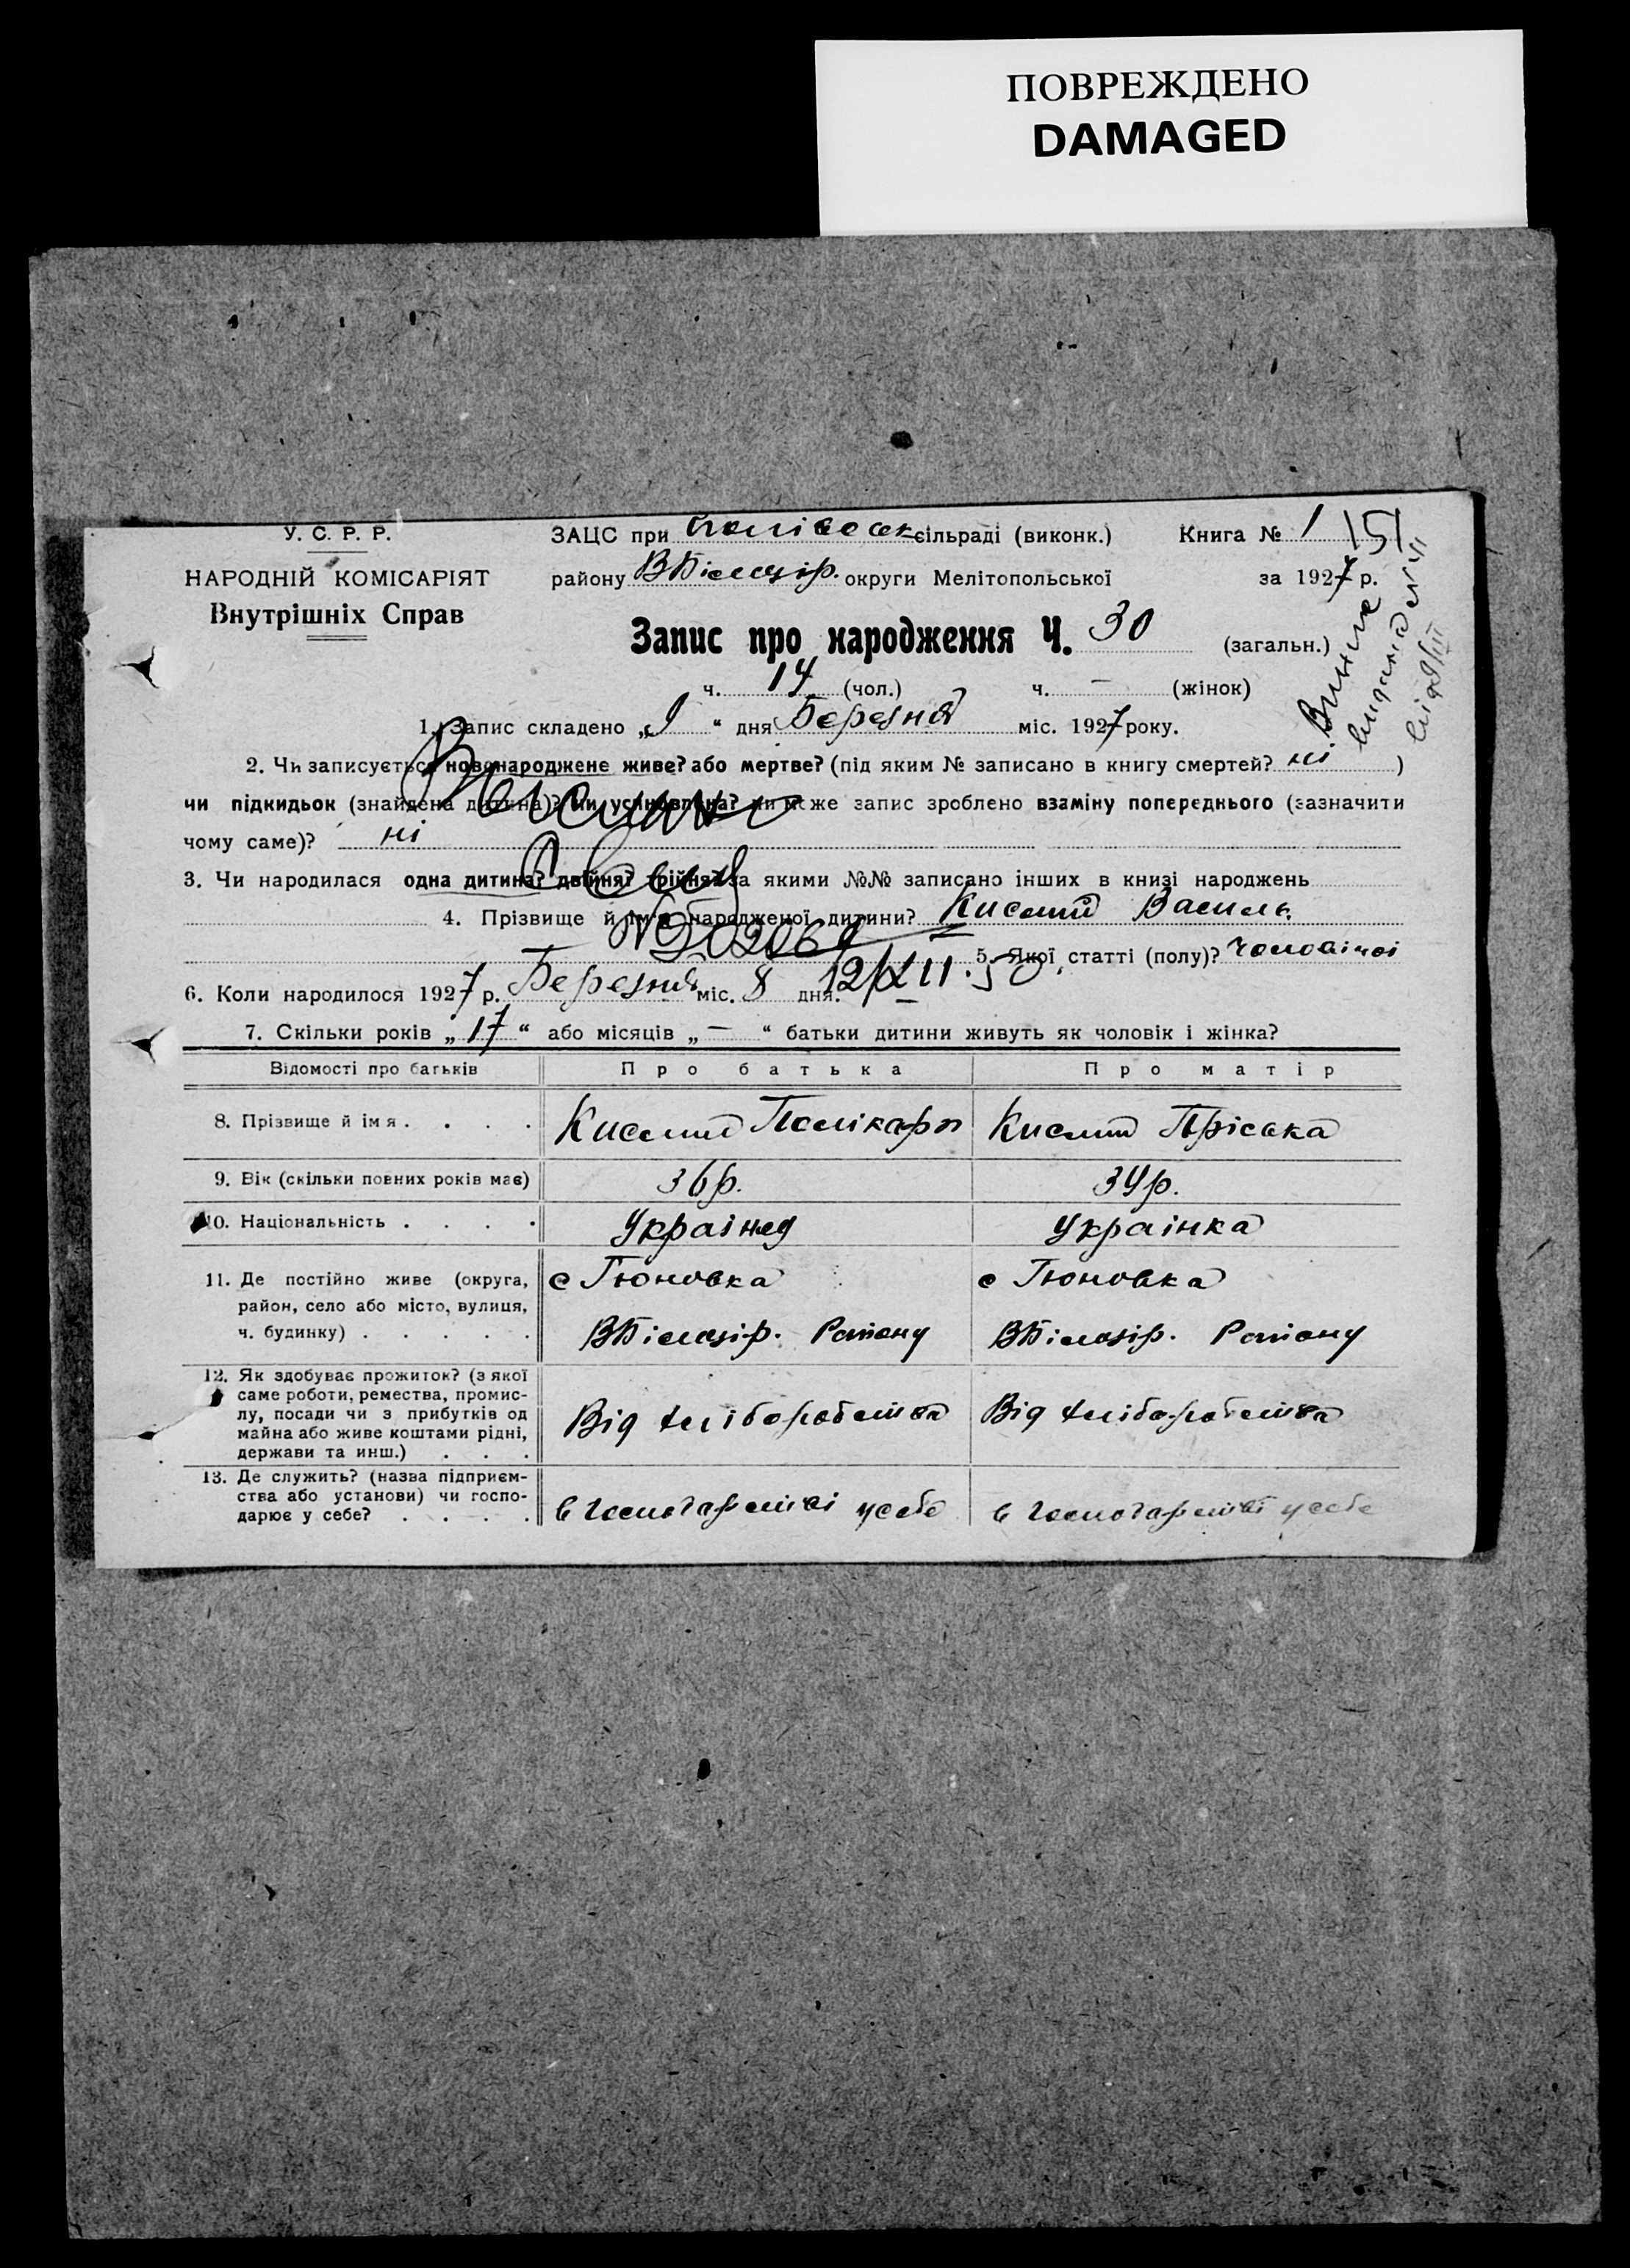 ПОВРЕЖДЕНО
DAMAGED
У. С. Р. Р.
НАРОДНІЙ КОМІСАРІЯТ
Внутрішніх Справ
ЗАЦС при сільраді (виконк.) Книга № 1 151
району ВБілозір. округи Мелітопольської за 1927 р.
Запис про народження Ч. 30 (загальн.)
ч. 14 (чол.) ч. — (жінок)
1. Запис складено „9“ дня Березня міс. 1927 року.
2. Чи записується новонароджене живе? або мертве? (під яким № записано в книгу смертей? ні )
чи підкидьок (знайдена дитина)? чи усиновлена? чи може запис зроблено взаміну попереднього (зазначити
чому саме)? ні
3. Чи народилася одна дитина? двійня? трійня? за якими №№ записано інших в книзі народжень
4. Прізвище й ім'я народженої дитини? Кислий Василь
5. Якої статті (полу)? чоловічої
6. Коли народилося 1927 р. Березня міс. 8 дня. 12/XII.50
7. Скільки років „17“ або місяців „—“ батьки дитини живуть як чоловік і жінка?
Відомості про батьків Про батька Про матір
8. Прізвище й ім я . . . . Кислий Полікарп Кислий Пріська
9. Вік (скільки повних років має) 36р. 34р.
10. Національність . . . . Українец Українка
11. Де постійно живе (округа, район, село або місто, вулиця, ч. будинку) . . . . .
с Гюновка с Гюновка
ВБілозір. Району ВБілозір. Району
12. Як здобуває прожиток? (з якої
саме роботи, ремества, промис-
лу, посади чи з прибутків од
майна або живе коштами рідні,
держави та инш.) . . .
Від хліборобства Від хліборобства
13. Де служить? (назва підприєм-
ства або установи) чи госпо-
дарює у себе? . . . .
в господарстві у себе в господарстві у себе